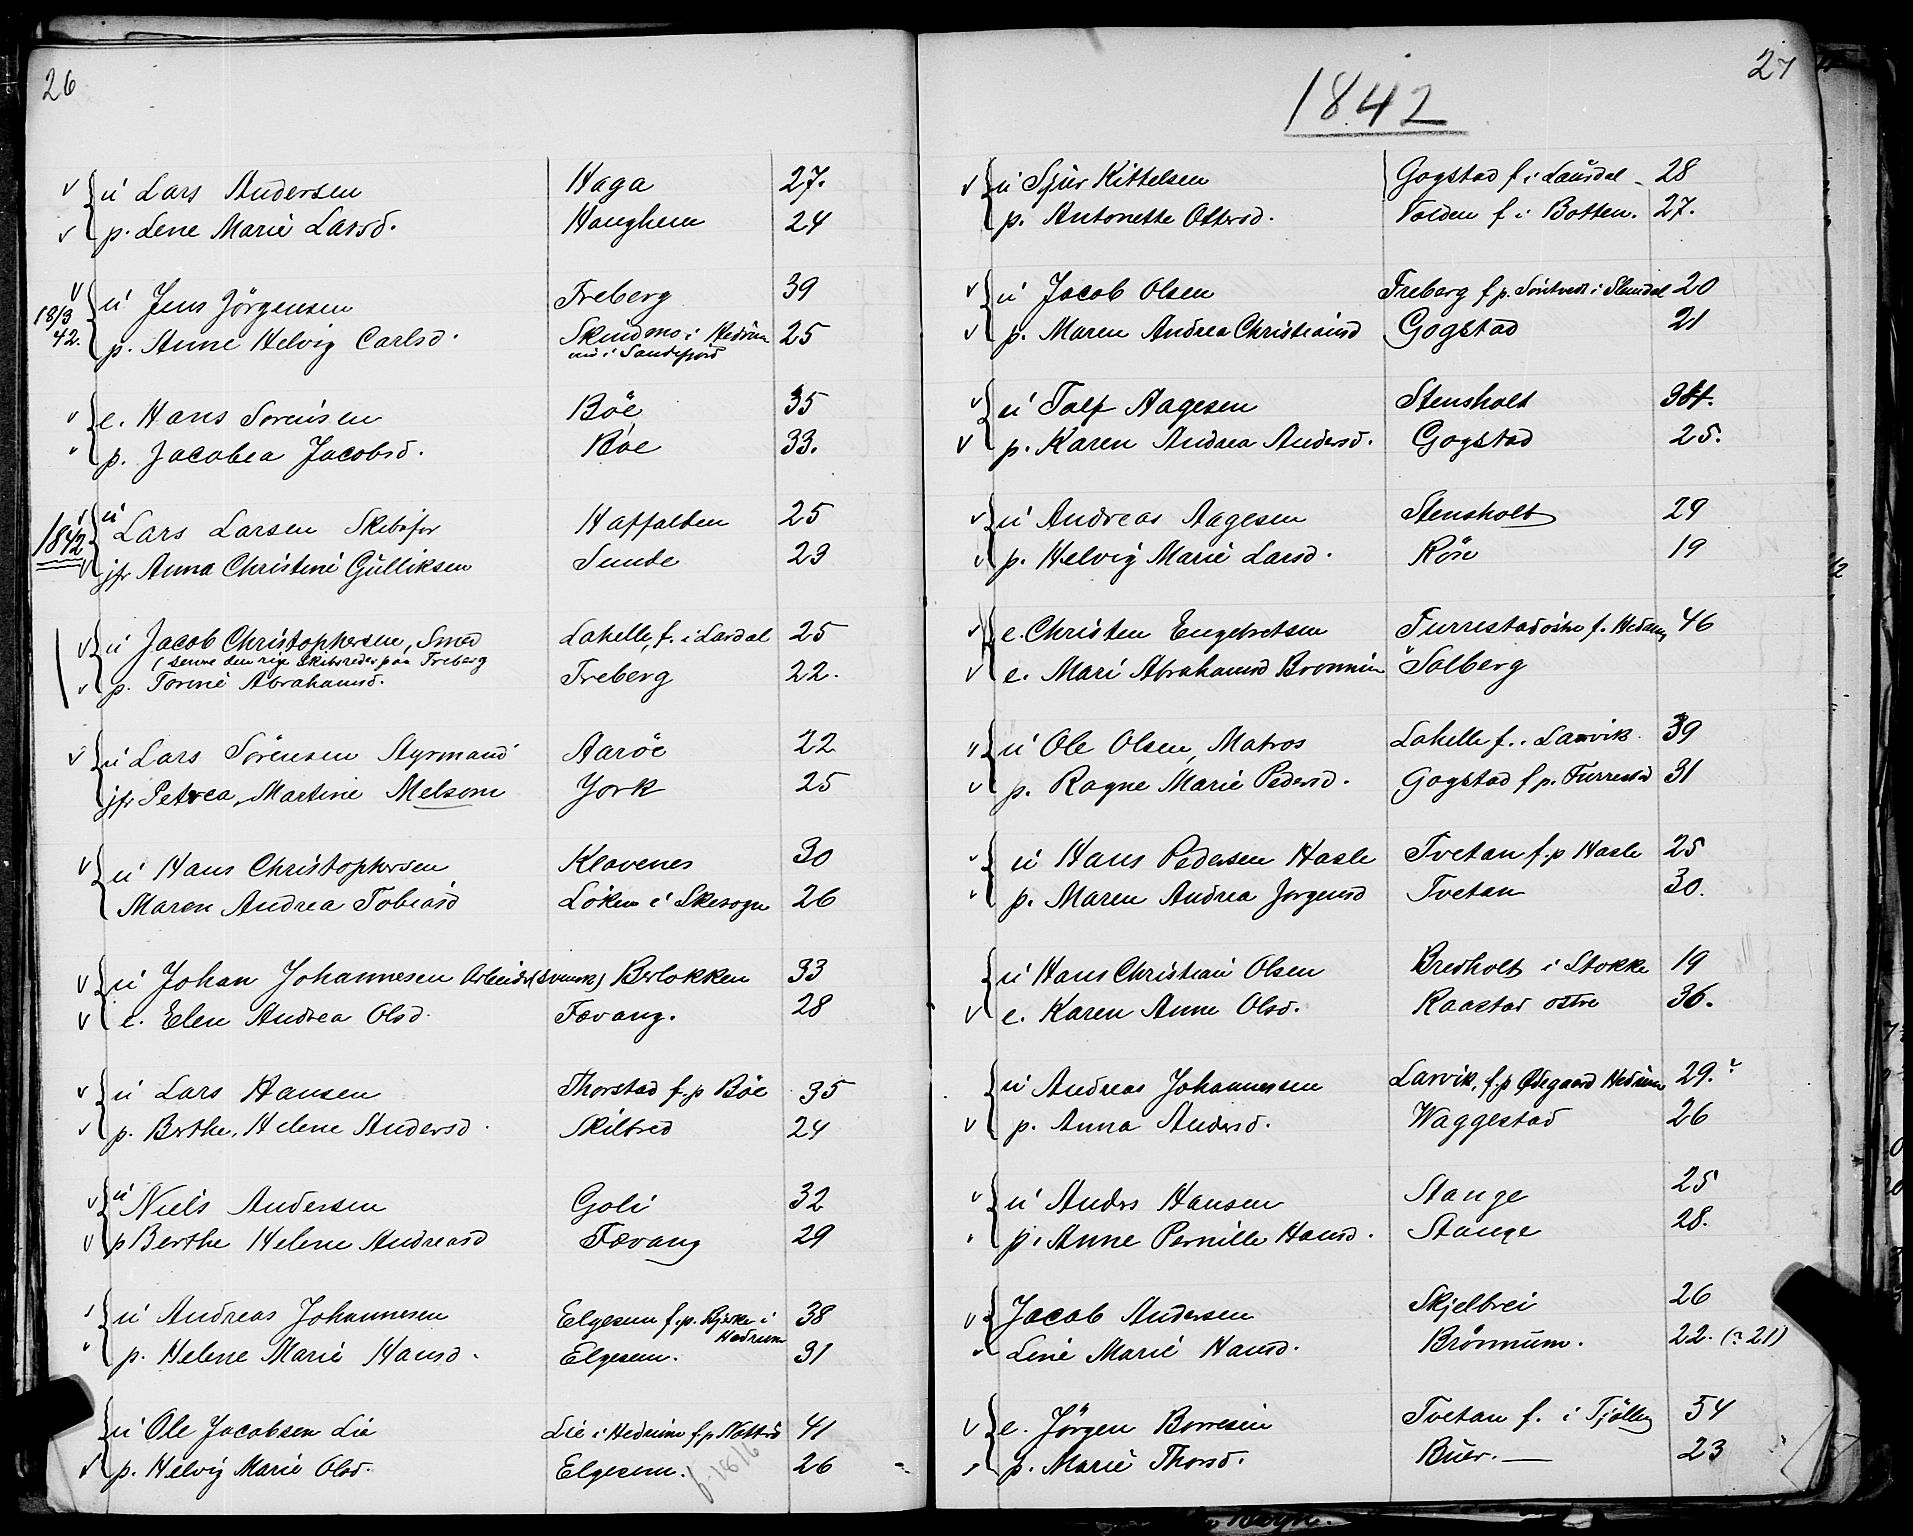 26
u Lars Andersen Haga 27.
p. Lene Marie Larsd. Haughem 24
18/3 42. u Jens Jörgensen Freberg 39
p. Anne Helvig Carlsd. Skindmo i Hedrum 25
nu i Sandefjord
e. Hans Sorensen Böe 35
p. Jacobea Jacobsd. Böe 33.
1842 u Lars Larsen Skibsför Haffalden 25
jfr Anna Christine Gulliksen Sunde 23
u Jacob Christophersen, Smed Lahelle, f. i Lardal 25
(denne den rige Skibsreder paa Freberg
p. Torine Abrahamsd. Freberg 22.
u Lars Sörensen Styrmand Aaröe 22
jfr Petrea, Martine Melsom York 25
u Hans Christophersen Klavenes 30
Maren Andrea Tobiasd Löken i Skesogn 26
u Johan Johannesen Arbeider (svensk) Berlokken 33
e. Elen Andrea Olsd. Fævang. 28
u Lars Hansen Thorstad f. p Böe 35
p. Berthe, Helene Andersd. Skilbred 24
u Niels Andersen Goli 32
p Berthe Helene Andreasd Fævang 29
u Andreas Johannesen Elgesem f. p. Bjerke i Hedrum 38
p. Helene Marie Hansd. Elgesem. 31
u Ole Jacobsen Lie Lie i Hedrum f. p 41
p. Helvig Marie Olsd. Elgesem. f. 1816 26
27
1842
u Sjur Kittelsen Gogstad f i Laurdal 28
p. Antonette Ottersd. Volden f i Botten. 27.
u Jacob Olsen Freberg f. p. i Slemdal 20
p. Maren Andrea Christiansd Gogstad 21
u Tolf Aagesen Stensholt 34.
p. Karen Andrea Andersd. Gogstad 25.
u Andreas Aagesen Stensholt 29
p. Helvig Marie Larsd. Röe 19
e. Christen Engebretsen Furrestad östre f. Hedrum 46
e. Mari Abrahamsd Bronnum Solberg
u Ole Olsen, Matros Lahelle f. i Larvik 39
p. Ragne Marie Pedersd. Gogstad f p. Furrestd 31
u Hans Pedersen Hasle Tvetan f. p Hasle 25
p. Maren Andrea Jorgensd Tvetan 30.
u Hans Christian Olsen Bredholt i Stokke 19
e. Karen Anne Olsd. Raastad ostre 36.
u Andreas Johannesen Larvik, f. p Ødegaard Hedrum 29.
p. Anna Andersd. Waggestad 26
u Anders Hansen Stange 25
p. Anne Pernille Hansd. Stange 28.
Jacob Andersen Skjelbrei 26
Line Marie Hansd. Brönnum. 22. (? 21)
e. Jörgen Borresen Tvetan f. i Tjölling 54
p. Marie Thorsd. Buer. — 23